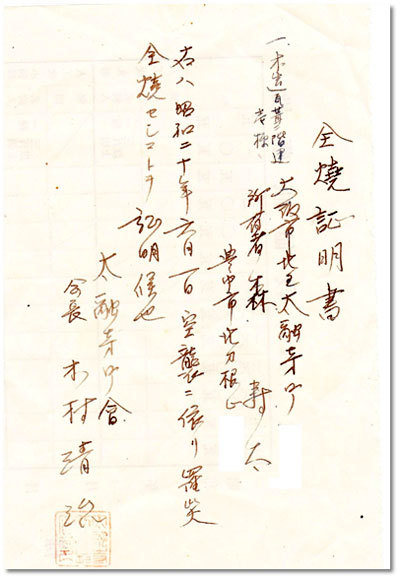 全燒証明書
大阪市北区太融寺町
一、木造瓦葺二階建
壱棟、
所有者 森 寿太
豊中市北刀根山
右ハ昭和二十年六月一日空襲ニ依リ罹災
全燒セシコトヲ証明候也
太融寺町会
会長 木村靖